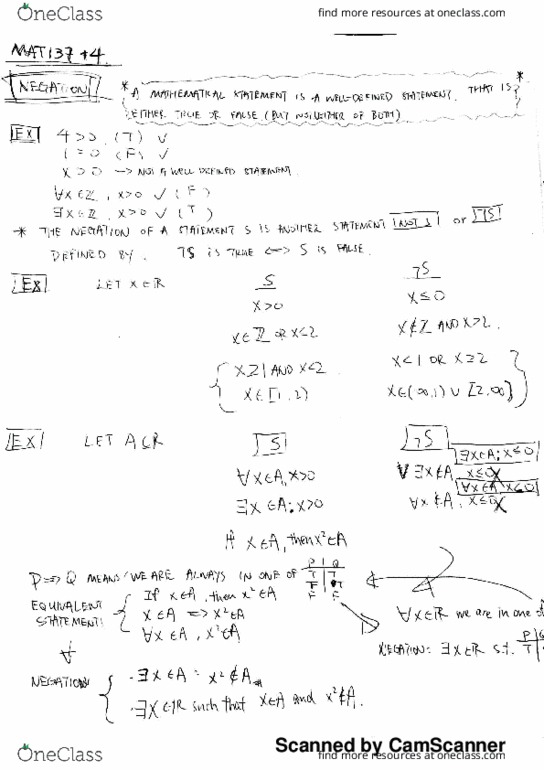 OneClass
find more resources at oneclass.com
MAT137 #4.
NEGATION
* A MATHEMATICAL STATEMENT IS A WELL-DEFINED STATEMENT. THAT IS *
EITHER TRUE OR FALSE (BUT NOT NEITHER OF BOTH)
EX 4>0 (T) ✓
1=0 (F) ✓
x>0 → NOT A WELL DEFINED STATEMENT.
∀x∈ℤ, x>0 ✓ (F)
∃x∈ℤ, x>0 ✓ (T)
* THE NEGATION OF A STATEMENT S IS ANOTHER STATEMENT NOT S or ¬S
DEFINED BY. ¬S IS TRUE <=> S IS FALSE.
EX LET x∈ℝ S ¬S
x>0 x≤0
x∈ℤ OR x≤2 x∉ℤ AND x>2.
x≥1 AND x<2 x<1 OR x≥2
x∈[1,2) x∈(∞,1) ∪ [2,∞)
EX LET A⊂ℝ S ¬S
∃x∈A; x≤0
∀x∈A, x>0 ∀ ∃x∉A, x≤0
∀x∈A, x≤0
∃x∈A; x>0 ∀x∉A, x≤0
If x∈A, then x²∈A
P=>Q MEANS: WE ARE ALWAYS IN ONE OF
P Q
T T
F T
F F
EQUIVALENT STATEMENT:
If x∈A, then x²∈A
x∈A => x²∈A
∀x∈A, x²∈A
∀x∈ℝ we are in one
NEGATION: ∃x∈ℝ s.t.
P
T
NEGATION
·∃x∈A: x²∉A
·∃x∈ℝ such that x∈A and x²∉A.
Scanned by CamScanner
OneClass
find more resources at oneclass.com